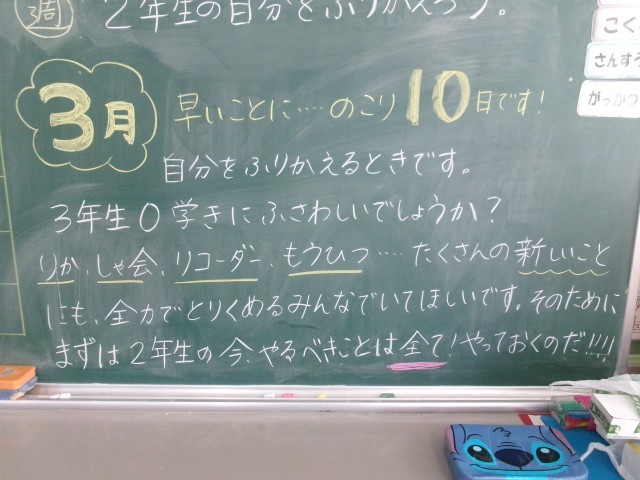 週 2年生の自分をふりかえろう。
3月 早いことに…のこり10日です!
自分をふりかえるときです。
3年生0学きにふさわしいでしょうか?
りか、しゃ会、リコーダー、もうひつ……たくさんの新しいこと
にも、全力でとりくめるみんなでいてほしいです。そのために
まずは2年生の今、やるべきことは全て!やっておくのだ!!!!
こく
さんすう
がっかつ